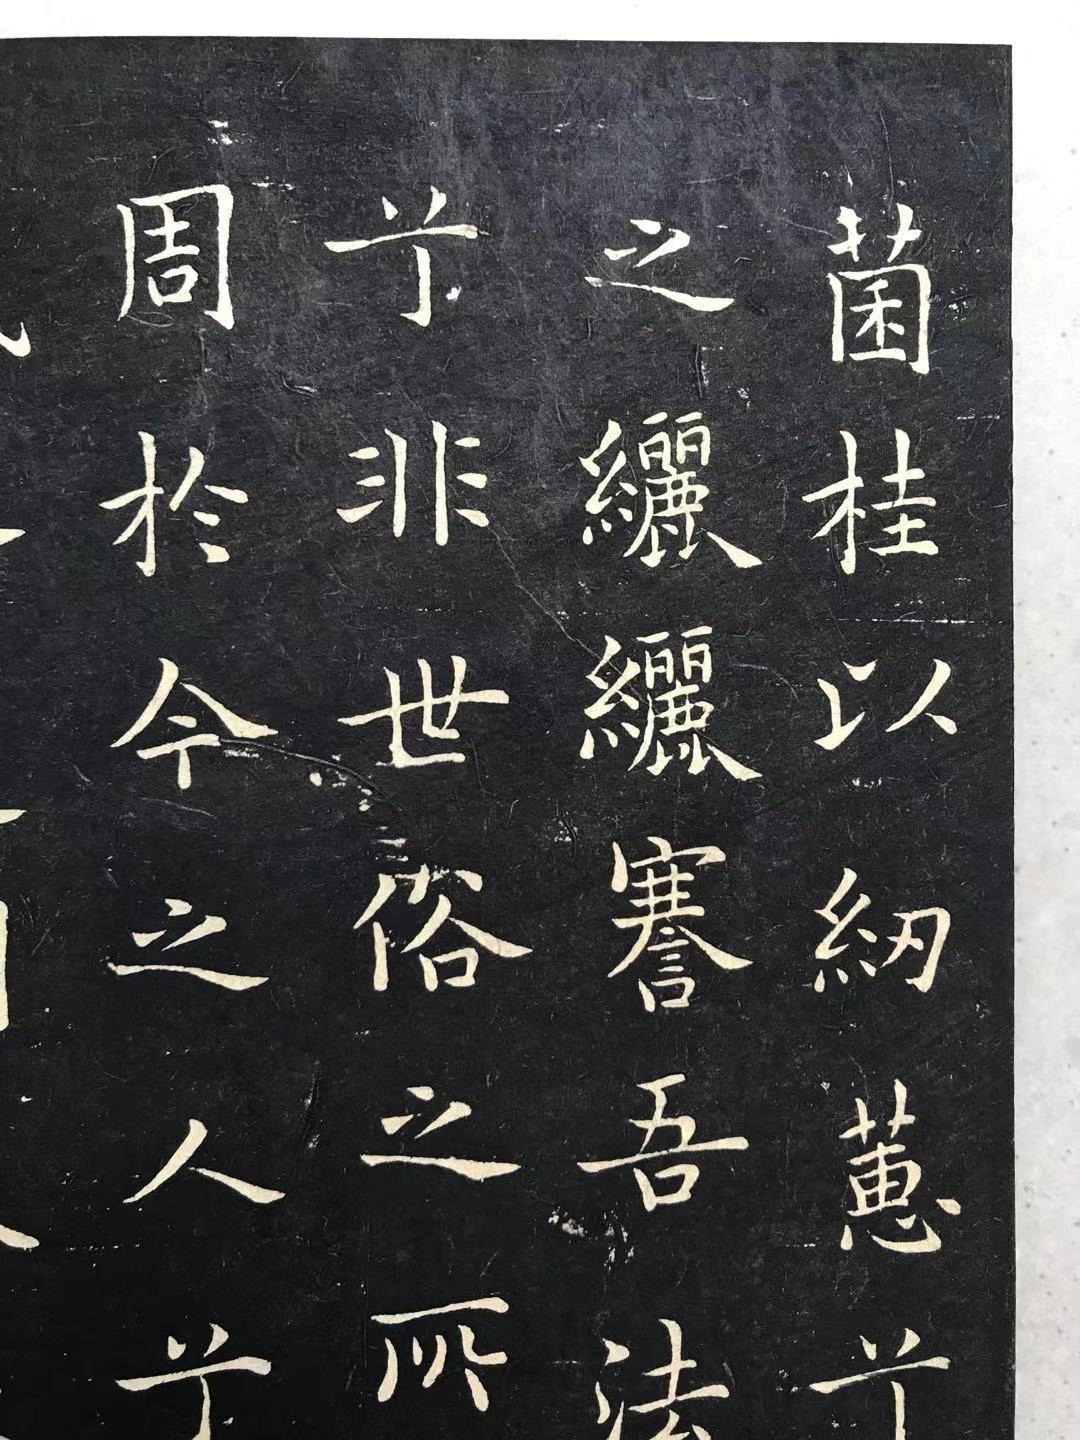 菌桂以紉蕙兮
之纚纚謇吾法
兮非世俗之所
周於今之人兮